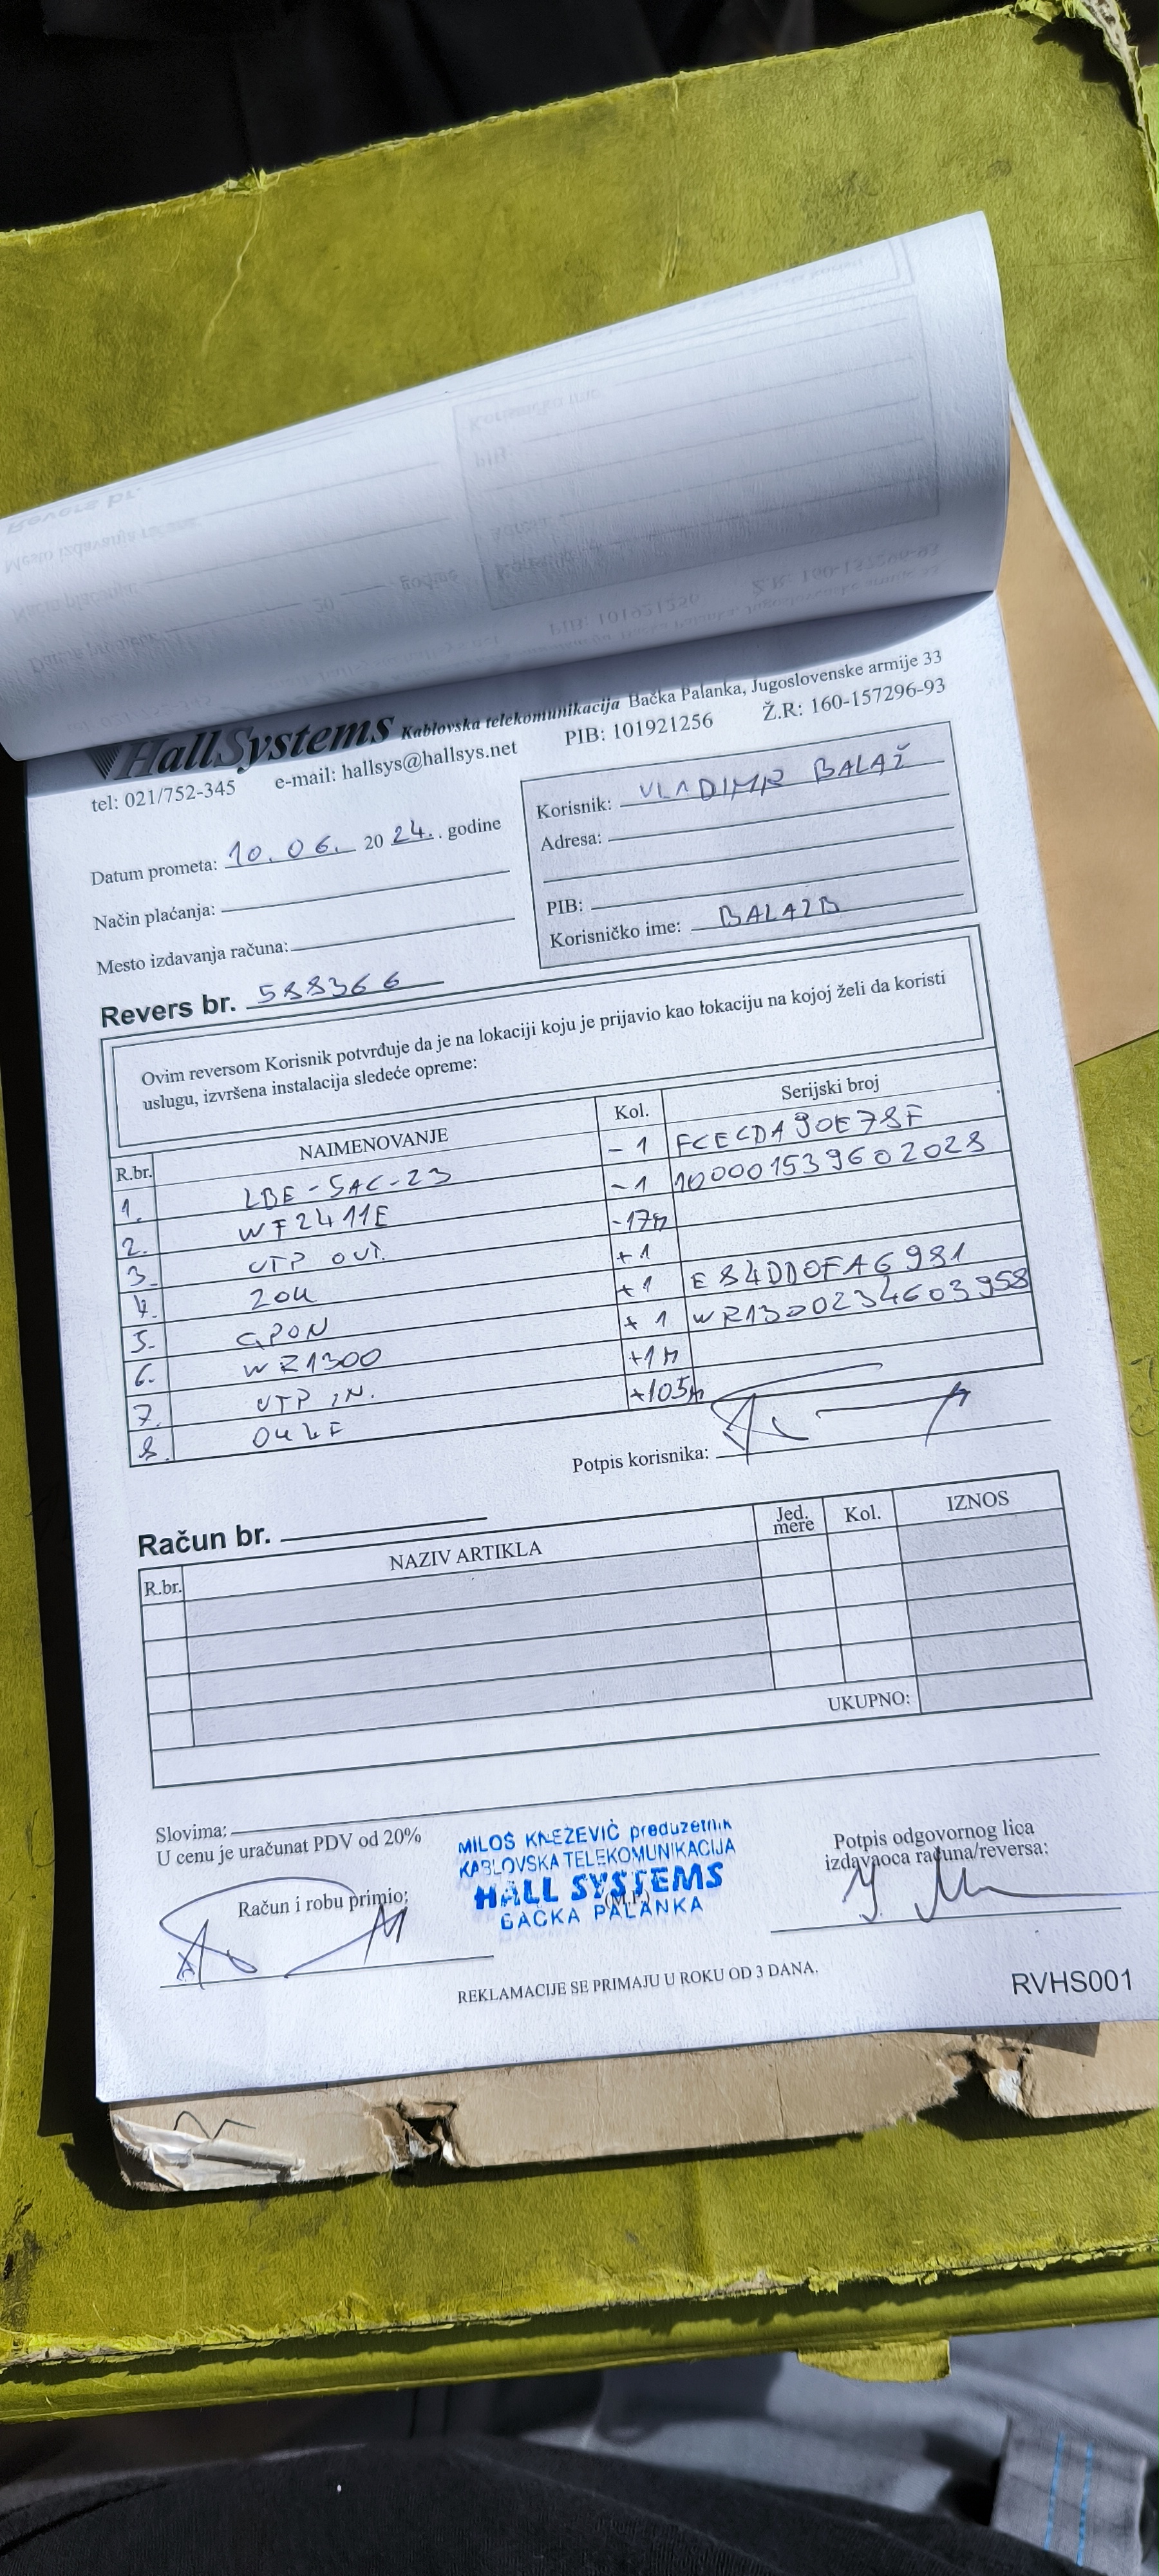 HallSystems Kablovska telekomunikacija Bačka Palanka, Jugoslovenske armije 33
tel: 021/752-345 e-mail: hallsys@hallsys.net PIB: 101921256 Ž.R: 160-157296-93
Datum prometa: 10. 06. 20 24. . godine
Način plaćanja:
Mesto izdavanja računa:
Korisnik: VLADIMIR BALAŽ
Adresa:
PIB:
Korisničko ime: BALAZB
Revers br. 588366
Ovim reversom Korisnik potvrđuje da je na lokaciji koju je prijavio kao lokaciju na kojoj želi da koristi
uslugu, izvršena instalacija sledeće opreme:
R.br. NAIMENOVANJE Kol. Serijski broj
1. LBE-5AC-23 -1 FCECDA90E78F
2. WF2411E -1 10000153960202028
3. UTP OUT. -17m
4. ZOK +1
5. GPON +1 E84DD0FA6981
6. WR1300 +1 WR1300234603958
7. UTP IN. +1m
8. +105m
Potpis korisnika:
Račun br.
R.br. NAZIV ARTIKLA Jed. mere Kol. IZNOS
UKUPNO:
Slovima:
U cenu je uračunat PDV od 20%
Račun i robu primio:
MILOŠ KNEŽEVIĆ preduzetnik
KABLOVSKA TELEKOMUNIKACIJA
HALL SYSTEMS
(M.P.)
BAČKA PALANKA
Potpis odgovornog lica
izdavaoca računa/reversa:
REKLAMACIJE SE PRIMAJU U ROKU OD 3 DANA.
RVHS001